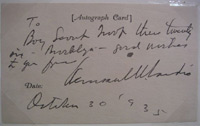 [Autograph Card]
To
Boy Scout Troop three twenty
six - Brooklyn - good wishes
to you from
Date:
October 30 '935